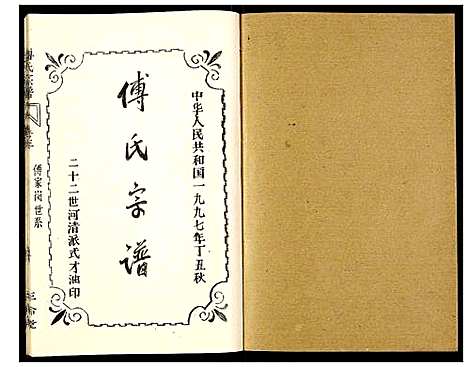 中华人民共和国一九九七年丁丑秋
傅氏宗谱
二十二世河清派式才油印
傅氏宗谱
傅家岗世系